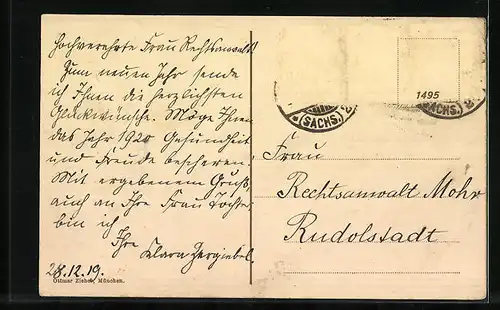 Hochverehrte Frau Rechtsanwalt!
Zum neuen Jahr sende
ich Ihnen die herzlichsten
Glückwünsche. Möge Ihnen
das Jahr 1920 Gesundheit
und Freude bescheren.
Mit ergebenem Gruß,
auch an Ihre Frau Tochter
bin ich
Ihre Klara Zergiebel.
28.12.19.
Ottmar Zieher, München.
1495
(SACHS.)
(SACHS.)
Frau
Rechtsanwalt Mohr
Rudolstadt